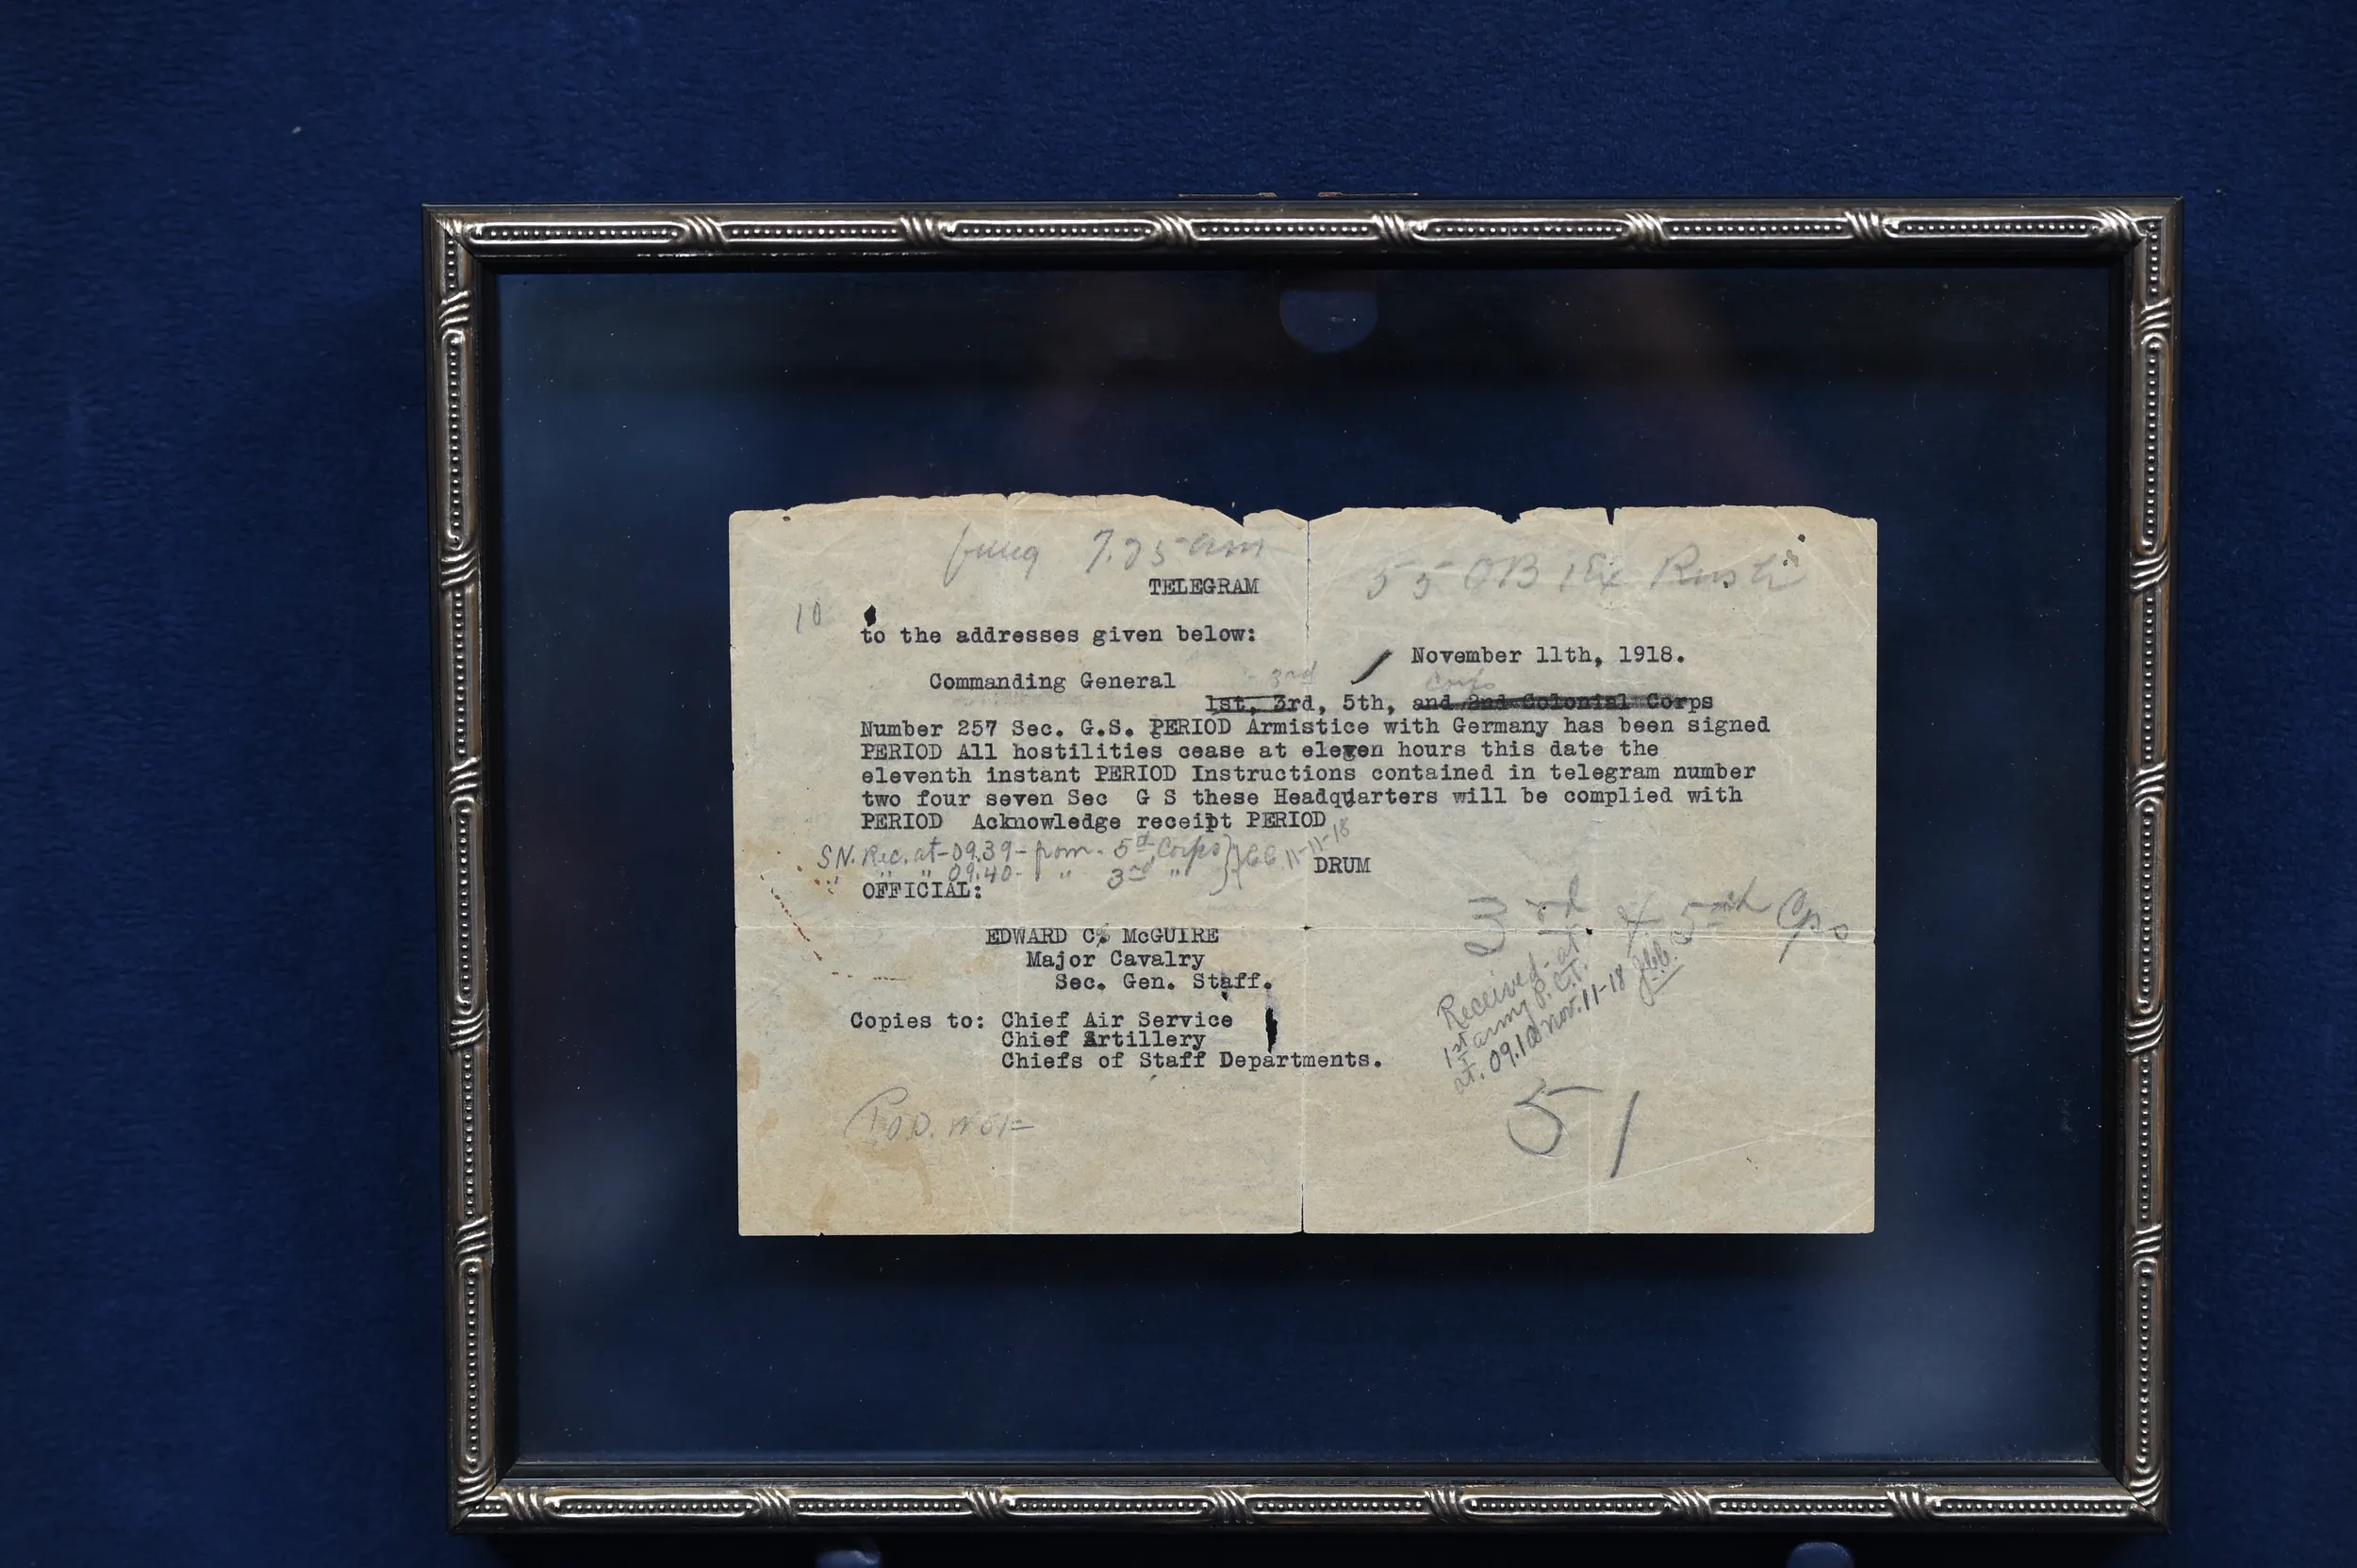 7.25 am
55 OB 1Ex Rush
TELEGRAM
10
to the addresses given below:
November 11th, 1918.
3rd Corps
Commanding General
1st, 3rd, 5th, and 2nd Colonial Corps
Number 257 Sec. G.S. PERIOD Armistice with Germany has been signed
PERIOD All hostilities cease at eleven hours this date the
eleventh instant PERIOD Instructions contained in telegram number
two four seven Sec G S these Headquarters will be complied with
PERIOD Acknowledge receipt PERIOD
SN. Rec. at - 09.39 - from - 5th Corps
" " " 09.40 - " " 3rd " 11-11-18
DRUM
OFFICIAL:
3rd & 5th Cps
EDWARD C. McGUIRE
Major Cavalry
Sec. Gen. Staff.
Received at
1st army P.C.T.
at. 09.10 Nov. 11-18
Copies to: Chief Air Service
Chief Artillery
Chiefs of Staff Departments.
51